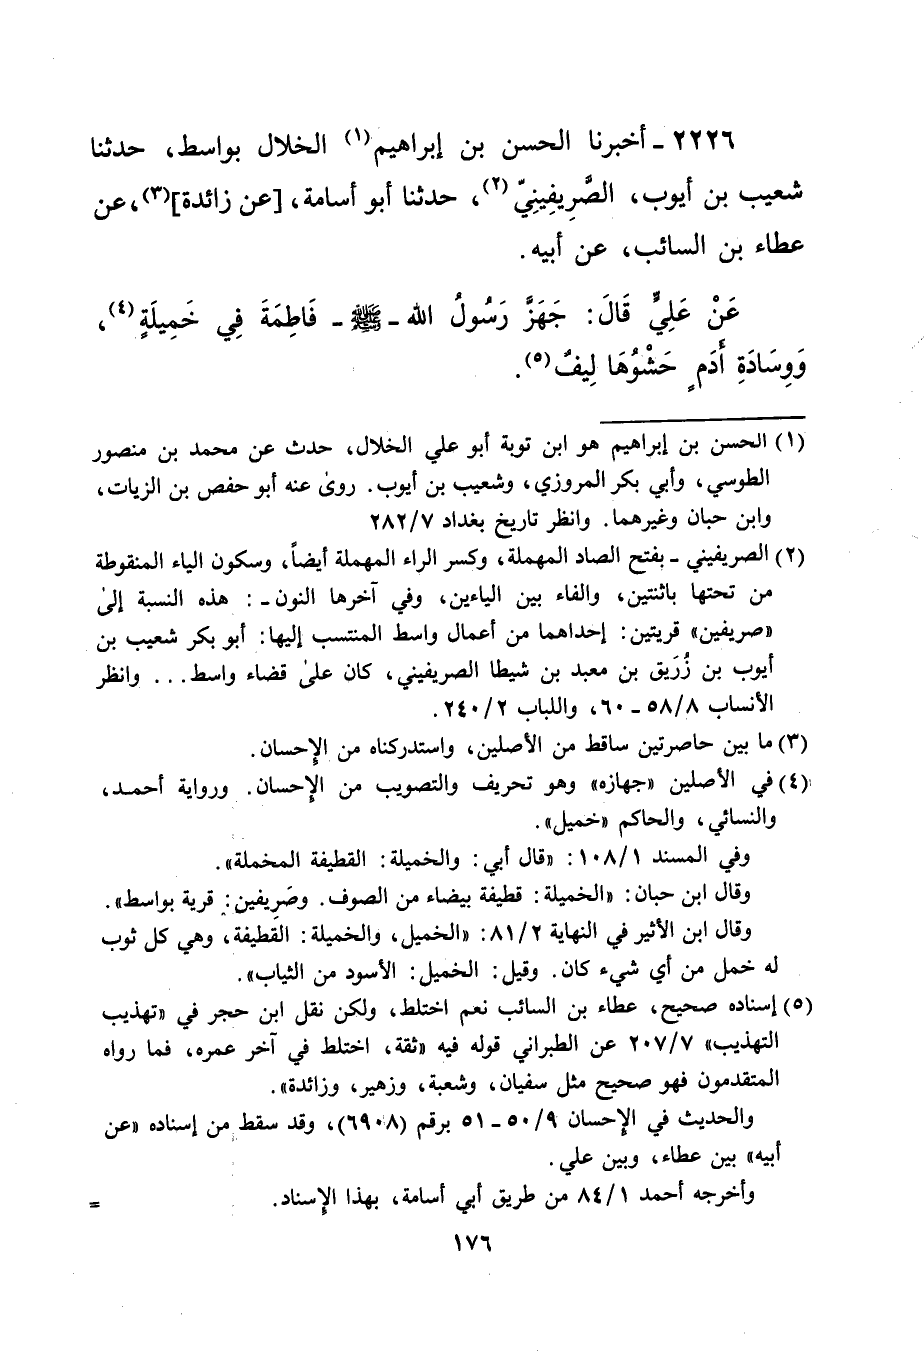 ٢٢٢٦ ـ أخبرنا الحسن بن إبراهيم(١) الخلال بواسط، حدثنا
شعيب بن أيوب، الصَّرِيفِينِيّ(٢)، حدثنا أبو أسامة، [عن زائدة](٣)، عن
عطاء بن السائب، عن أبيه.
عَنْ عَلِيٍّ قَالَ: جَهَزَّ رَسُولُ الله ـ ﷺ ـ فَاطِمَةَ فِي خَمِيلَةٍ(٤)،
وَوِسَادَةِ أَدَمٍ حَشْوُهَا لِيفٌ(٥).
(١) الحسن بن إبراهيم هو ابن توبة أبو علي الخلال، حدث عن محمد بن منصور
الطوسي، وأبي بكر المروزي، وشعيب بن أيوب. روىٰ عنه أبو حفص بن الزيات،
وابن حبان وغيرهما. وانظر تاريخ بغداد ٢٨٢/٧
(٢) الصريفيني ـ بفتح الصاد المهملة، وكسر الراء المهملة أيضاً، وسكون الياء المنقوطة
من تحتها باثنتين، والفاء بين الياءين، وفي آخرها النون ـ: هذه النسبة إلىٰ
«صريفين» قريتين: إحداهما من أعمال واسط المنتسب إليها: أبو بكر شعيب بن
أيوب بن زُرَيق بن معبد بن شيطا الصريفيني، كان علىٰ قضاء واسط... وانظر
الأنساب ٥٨/٨ ـ ٦٠، واللباب ٢٤٠/٢.
(٣) ما بين حاصرتين ساقط من الأصلين، واستدركناه من الإحسان.
(٤) في الأصلين «جهازه» وهو تحريف والتصويب من الإحسان. ورواية أحمد،
والنسائي، والحاكم «خميل».
وفي المسند ١٠٨/١: «قال أبي: والخميلة: القطيفة المخملة».
وقال ابن حبان: «الخميلة: قطيفة بيضاء من الصوف. وصَرِيفين: قرية بواسط».
وقال ابن الأثير في النهاية ٨١/٢: «الخميل، والخميلة: القطيفة، وهي كل ثوب
له خمل من أي شيء كان. وقيل: الخميل: الأسود من الثياب».
(٥) إسناده صحيح، عطاء بن السائب نعم اختلط، ولكن نقل ابن حجر في «تهذيب
التهذيب» ٢٠٧/٧ عن الطبراني قوله فيه «ثقة، اختلط في آخر عمره، فما رواه
المتقدمون فهو صحيح مثل سفيان، وشعبة، وزهير، وزائدة».
والحديث في الإحسان ٥٠/٩ ـ ٥١ برقم (٦٩٠٨)، وقد سقط من إسناده «عن
أبيه» بين عطاء، وبين علي.
وأخرجه أحمد ٨٤/١ من طريق أبي أسامة، بهذا الإسناد. =
١٧٦